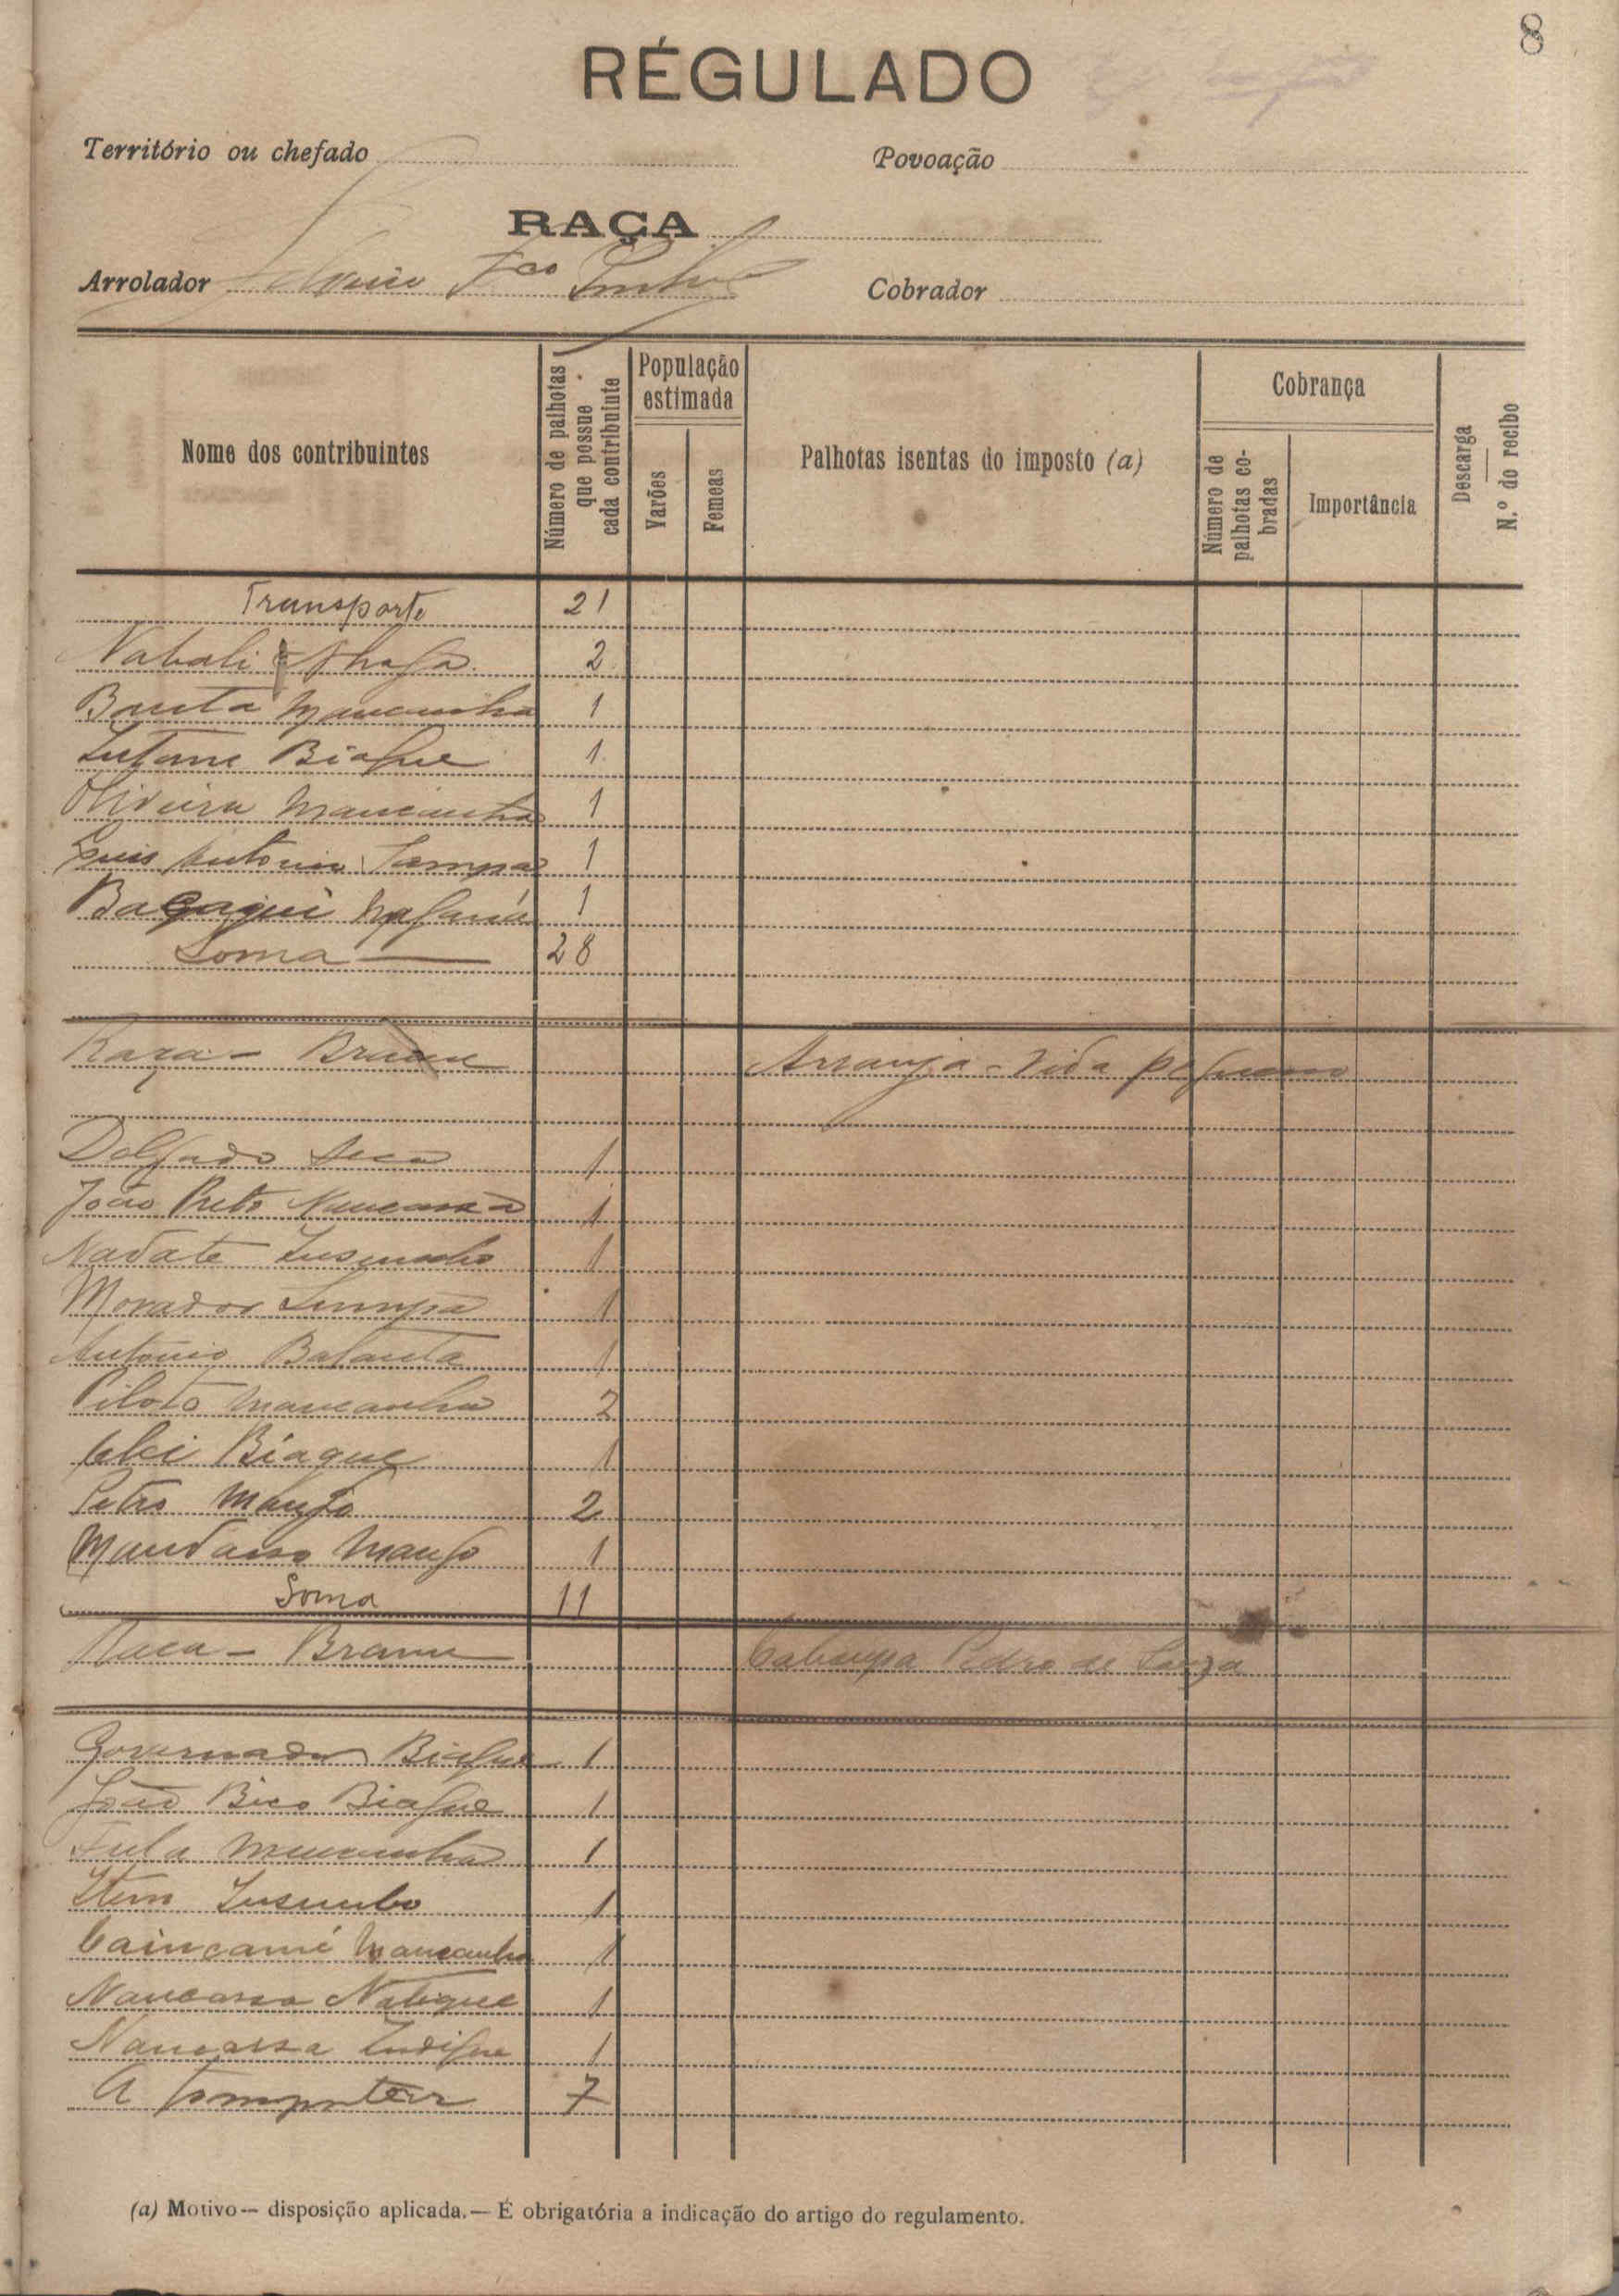 8
RÉGULADO
Território ou chefado
Povoação
RAÇA
Arrolador
Cobrador
Nome dos contribuintes
Número de palhotas que possue cada contribuinte
População estimada
Varões
Femeas
Palhotas isentas do imposto (a)
Cobrança
Número de palhotas cobradas
Importância
Descarga
N.º do recibo
Transporte 21
Nabali 2
Banta Mancanha 1
Biague 1
Oliveira Mancanha 1
Luis Antonio Sampa 1
1
Soma 28
Raça - Brame Arranja - Vida pequeno
Delgado 1
João Preto Nancassa 1
Nadate 1
Morador Sampa 1
Antonio Balanta 1
Piloto Mancanha 2
Biague 1
Petro Mango 2
Mango 1
Soma 11
Raça - Brame Cabaupa Pedro de Souza
Governador Biague 1
João Bico Biague 1
Fula Mancanha 1
1
Caincamé Mancanha 1
Nancassa Natique 1
Nancassa Indique 1
A transportar 7
(a) Motivo — disposição aplicada. — É obrigatória a indicação do artigo do regulamento.